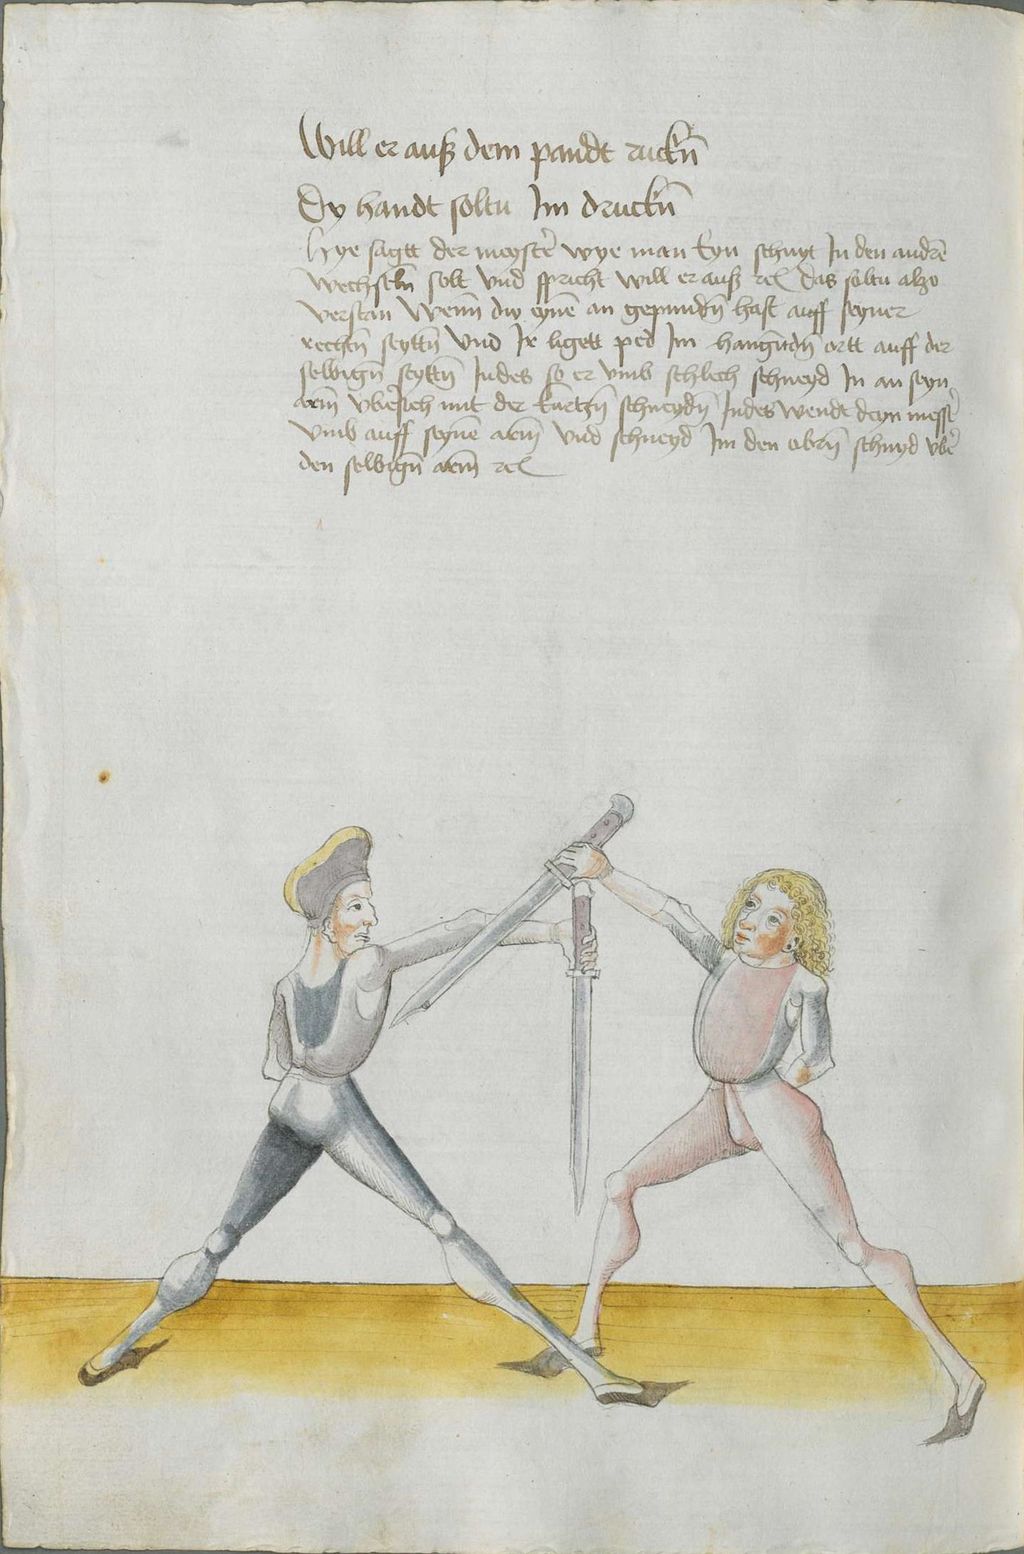 Will er auß dem pandt ruckn̄
Dy handt soltu Im druckn̄
Hye sagtt der meyster̄ wye man Eyn schnyt In den andrē
wechseln̄ solt Vnd spricht will er auß rc̄ das soltu alzo
verstan Wenn̄ dw eynē an gepundn̄ hast auff seyner
rechtn̄ seyttn̄ Vnd Ir ligett ped Im hangūdn̄ ortt auff der
selbign̄ seyttn̄ Indes so er vmb schlech schneyd In an seyn
arm̄ vbersich mit der kurtzn̄ schneydn̄ Indes wendt deyn messer̄
vmb auff seynē arm̄ vnd schneyd Im den obrn̄ schnyd vber̄
den selbign̄ arm̄ rc̄